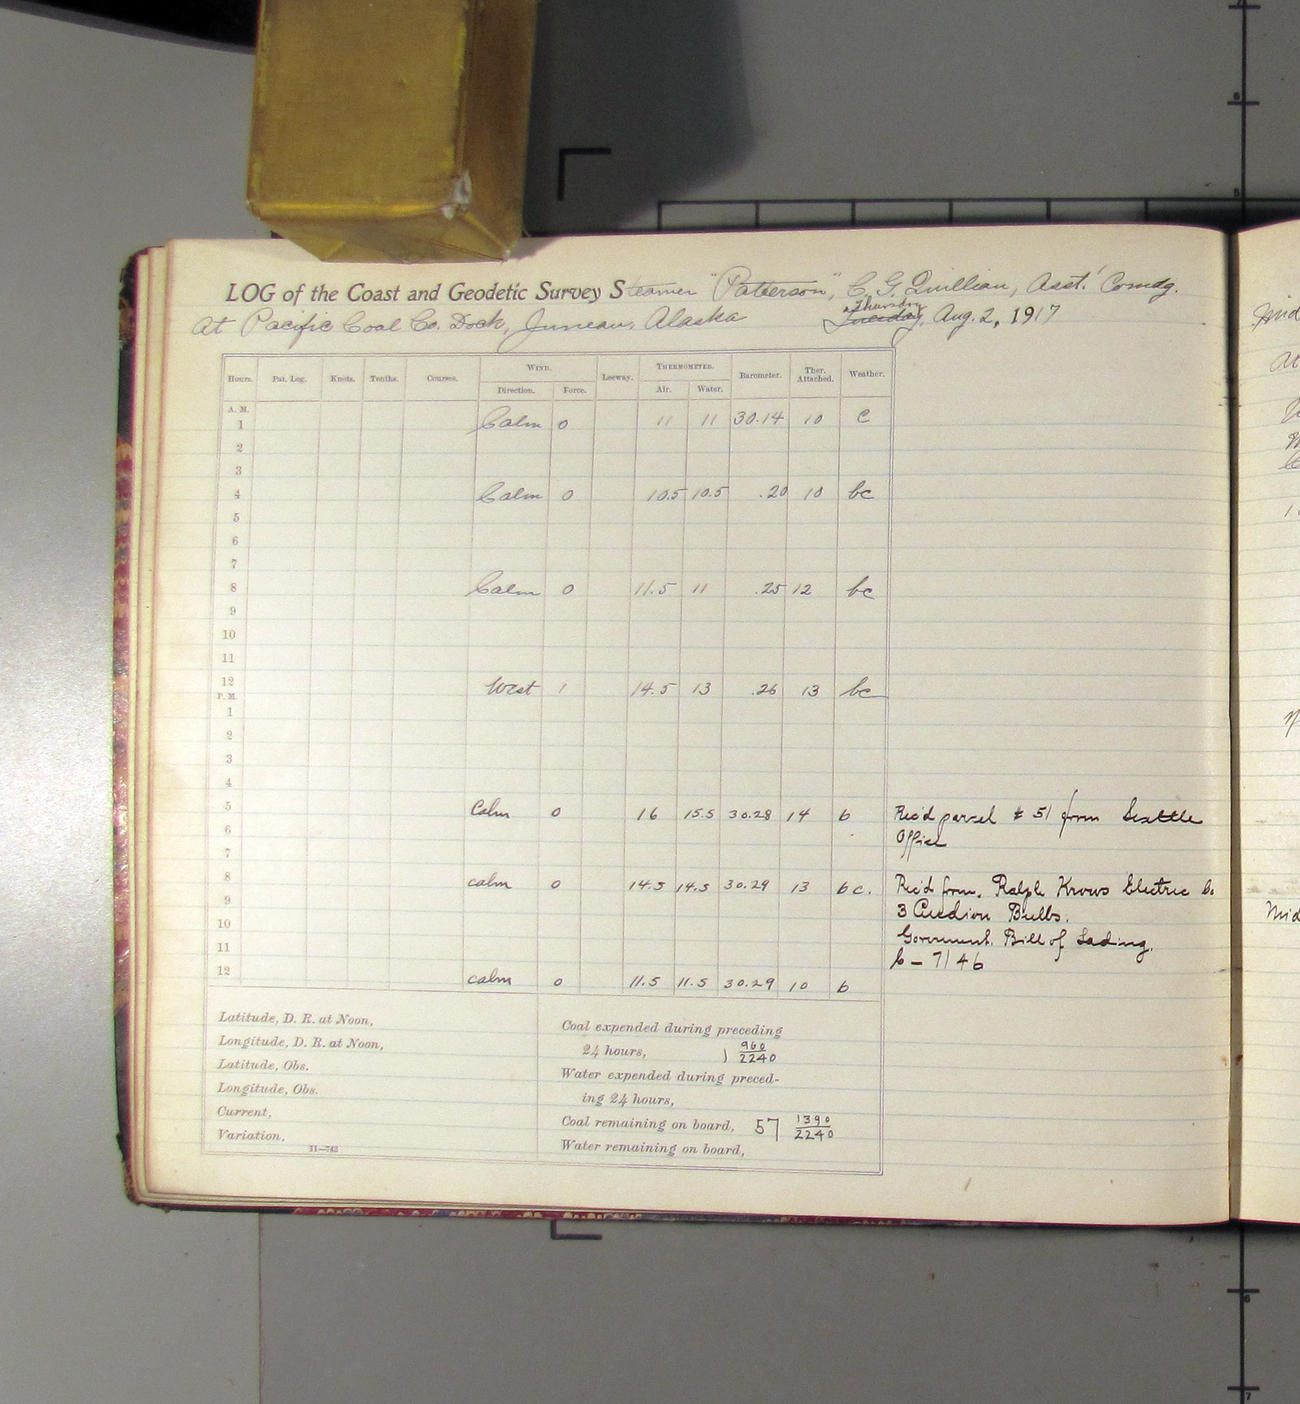 LOG of the Coast and Geodetic Survey Steamer "Patterson", C. G. Quillian, Asst. Comdg.
At Pacific Coal Co. Dock, Juneau, Alaska Tuesday Thursday, Aug. 2, 1917
Hours. Pat. Log. Knots. Tenths. Courses. WIND. Leeway. THERMOMETER. Barometer. Ther. Attached. Weather.
Direction. Force. Air. Water.
A. M.
1 Calm 0 11 11 30.14 10 c
2
3
4 Calm 0 10.5 10.5 .20 10 bc
5
6
7
8 Calm 0 11.5 11 .25 12 bc
9
10
11
12 West 1 14.5 13 .26 13 bc
P. M.
1
2
3
4
5 Calm 0 16 15.5 30.28 14 b Rec'd parcel # 51 from Seattle
6 Office
7
8 calm 0 14.5 14.5 30.29 13 bc. Rec'd from Ralph Electric Co
9 3 Audion Bulbs.
10 Government Bill of Lading.
11 C-7146
12 calm 0 11.5 11.5 30.29 10 b
Latitude, D. R. at Noon,
Longitude, D. R. at Noon,
Latitude, Obs.
Longitude, Obs.
Current,
Variation,
11—743
Coal expended during preceding
24 hours, 1 960/2240
Water expended during preced-
ing 24 hours,
Coal remaining on board, 57 1390/2240
Water remaining on board,
Mid